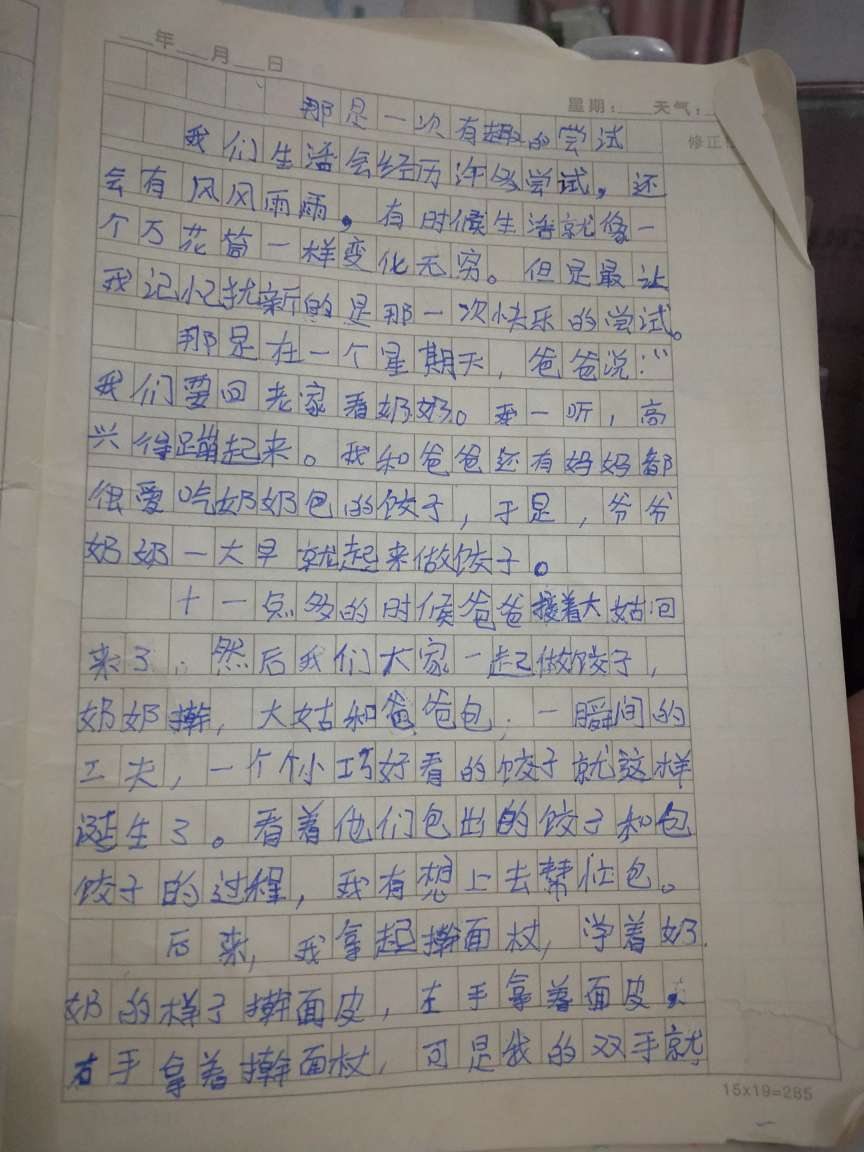 年 月 日
星期： 天气：
修正
那是一次有趣的尝试
我们生活会经历许多尝试，还
会有风风雨雨，有时候生活就像一
个万花筒一样变化无穷。但是最让
我记忆犹新的是那一次快乐的尝试。
那是在一个星期天，爸爸说：“
我们要回老家看奶奶。我一听，高
兴得蹦起来。我和爸爸还有妈妈都
很爱吃奶奶包的饺子，于是，爷爷
奶奶一大早就起来做饺子。
十一点多的时候爸爸接着大姑回
来了，然后我们大家一起做饺子，
奶奶擀，大姑和爸爸包，一瞬间的
工夫，一个个小巧好看的饺子就这样
诞生了。看着他们包出的饺子和包
饺子的过程，我有想上去帮忙包。
后来，我拿起擀面杖，学着奶
奶的样子擀面皮，左手拿着面皮，
右手拿着擀面杖，可是我的双手就
15x19=285